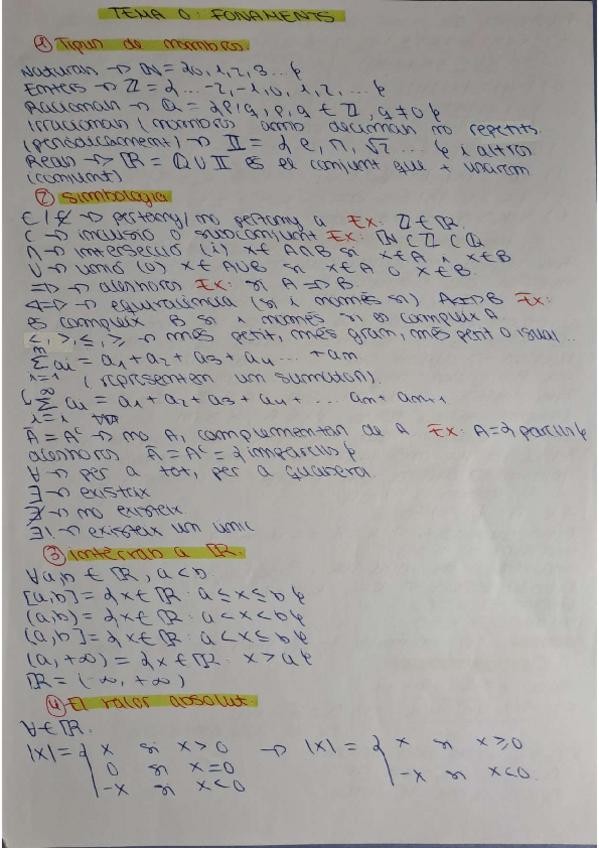 TEMA 0: FONAMENTS
① Tipus de nombres.
Naturals → ℕ = {0, 1, 2, 3 ... }
Enters → ℤ = { ... -2, -1, 0, 1, 2, ... }
Racionals → ℚ = {p/q, p, q ∈ ℤ, q ≠ 0}
Irracionals (nombres amb decimals no repetits
(periòdicament) → 𝕀 = { e, π, √2 ... } i altres
Reals → ℝ = ℚ ∪ 𝕀 es el conjunt que + usarem
(conjunt)
② Simbologia
∈ / ∉ → pertany / no pertany a Ex: ℤ ∈ ℝ.
⊂ → inclusió o subconjunt Ex: ℕ ⊂ ℤ ⊂ ℚ
∩ → intersecció (i) x ∈ A∩B si x ∈ A ∧ x ∈ B
∪ → unió (o) x ∈ A∪B si x ∈ A o x ∈ B.
=> → aleshores Ex: si A => B.
<=> → equivalència (si i només si) A<=>B Ex:
es compleix B si i només si es compleix A.
<, >, ≤, ≥ → més petit, més gran, més petit o igual...
m Σ i=1 ai = a1 + a2 + a3 + a4 ... + am
(representen un sumatori).
∞ Σ i=1 ai = a1 + a2 + a3 + a4 + ... an + an+1
Ā = Aᶜ → no A, complementari de A. Ex: A = {parells}
aleshores Ā = Aᶜ = {imparells}
∀ → per a tot, per a qualsevol
∃ → existeix
∄ → no existeix.
∃! → existeix un únic
③ Intervals a ℝ.
∀a,b ∈ ℝ, a < b.
[a,b] = {x ∈ ℝ: a ≤ x ≤ b}
(a,b) = {x ∈ ℝ: a < x < b}
(a,b] = {x ∈ ℝ: a < x ≤ b}
(a, +∞) = {x ∈ ℝ: x > a}
ℝ = (-∞, +∞)
④ El valor absolut.
∀ ∈ ℝ.
|x| = { x si x > 0 → |x| = { x si x ≥ 0
0 si x = 0
-x si x < 0 -x si x < 0.